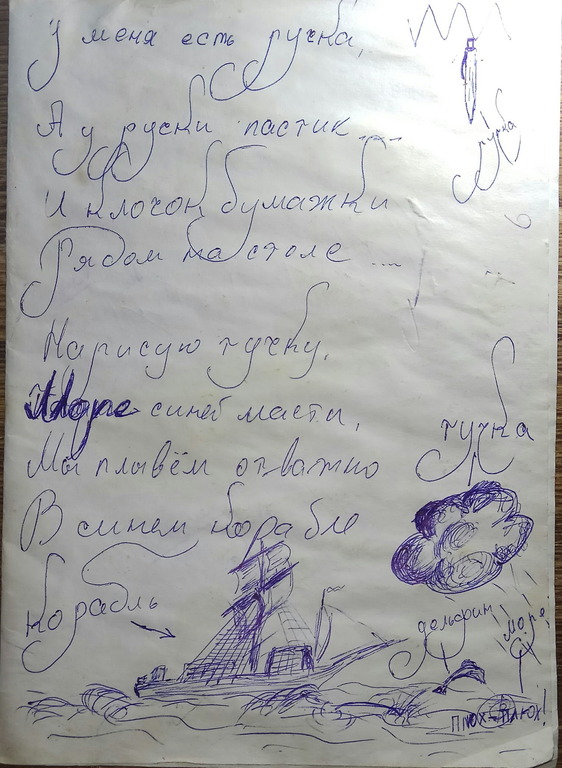 У меня есть ручка,
А у ручки пастик...
И клочок бумажки
Рядом на столе ...
Нарисую тучку,
Море синей масти,
Мы плывём отважно
В синем корабле
корабль
ручка
тучка
дельфин
море
ПЛЮХ-ПЛЮХ!